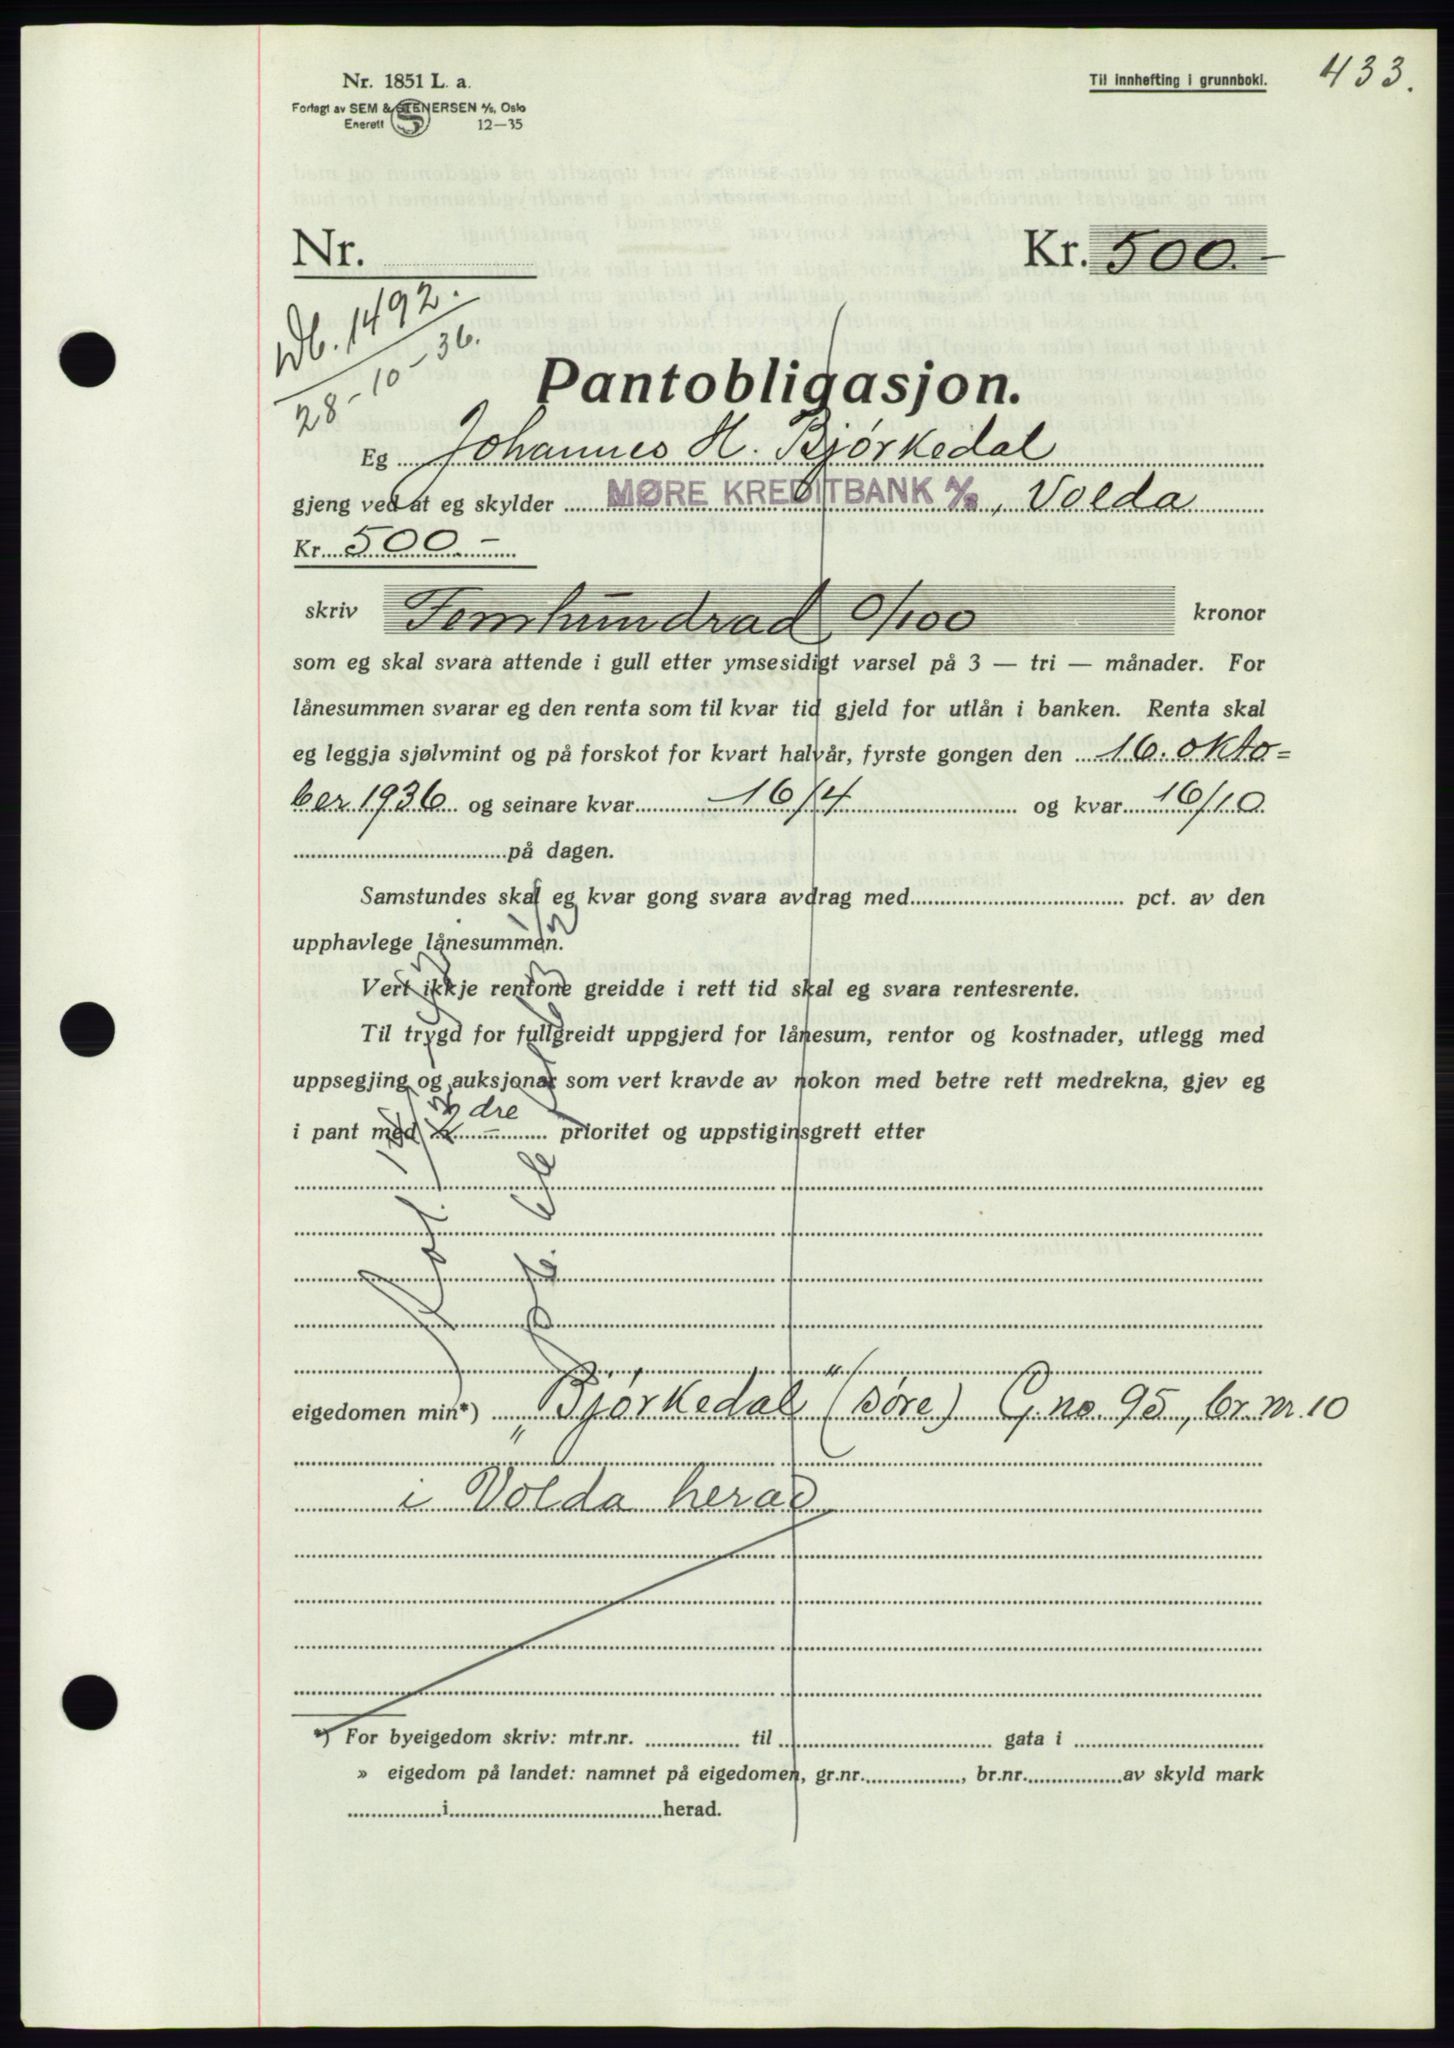 433.
Nr. 1851 L. a.
Til innhefting i grunnboki.
Forlagt av SEM & STENERSEN A/S, Oslo
Enerett 12—35
Nr.
Kr. 500.-
Db. 1492.
28-10-36.
Pantobligasjon.
Eg Johannes H. Bjørkedal
gjeng ved at eg skylder MØRE KREDITBANK A/S, Volda
Kr. 500.-
skriv Femhundrad 0/100 kronor
som eg skal svara attende i gull etter ymsesidigt varsel på 3 — tri — månader. For
lånesummen svarar eg den renta som til kvar tid gjeld for utlån i banken. Renta skal
eg leggja sjølvmint og på forskot for kvart halvår, fyrste gongen den 16. okto=
ber 1936 og seinare kvar 16/4 og kvar 16/10
på dagen.
Samstundes skal eg kvar gong svara avdrag med pct. av den
upphavlege lånesummen.
Vert ikkje rentone greidde i rett tid skal eg svara rentesrente.
Til trygd for fullgreidt uppgjerd for lånesum, rentor og kostnader, utlegg med
uppsegjing og auksjonar som vert kravde av nokon med betre rett medrekna, gjev eg
i pant med dre prioritet og uppstiginsgrett etter
eigedomen min*) „Bjørkedal" (søre) G. no. 95, br. nr. 10
i Volda herad
*) For byeigedom skriv: mtr.nr. til gata i
» eigedom på landet: namnet på eigedomen, gr.nr. , br.nr. av skyld mark
i herad.